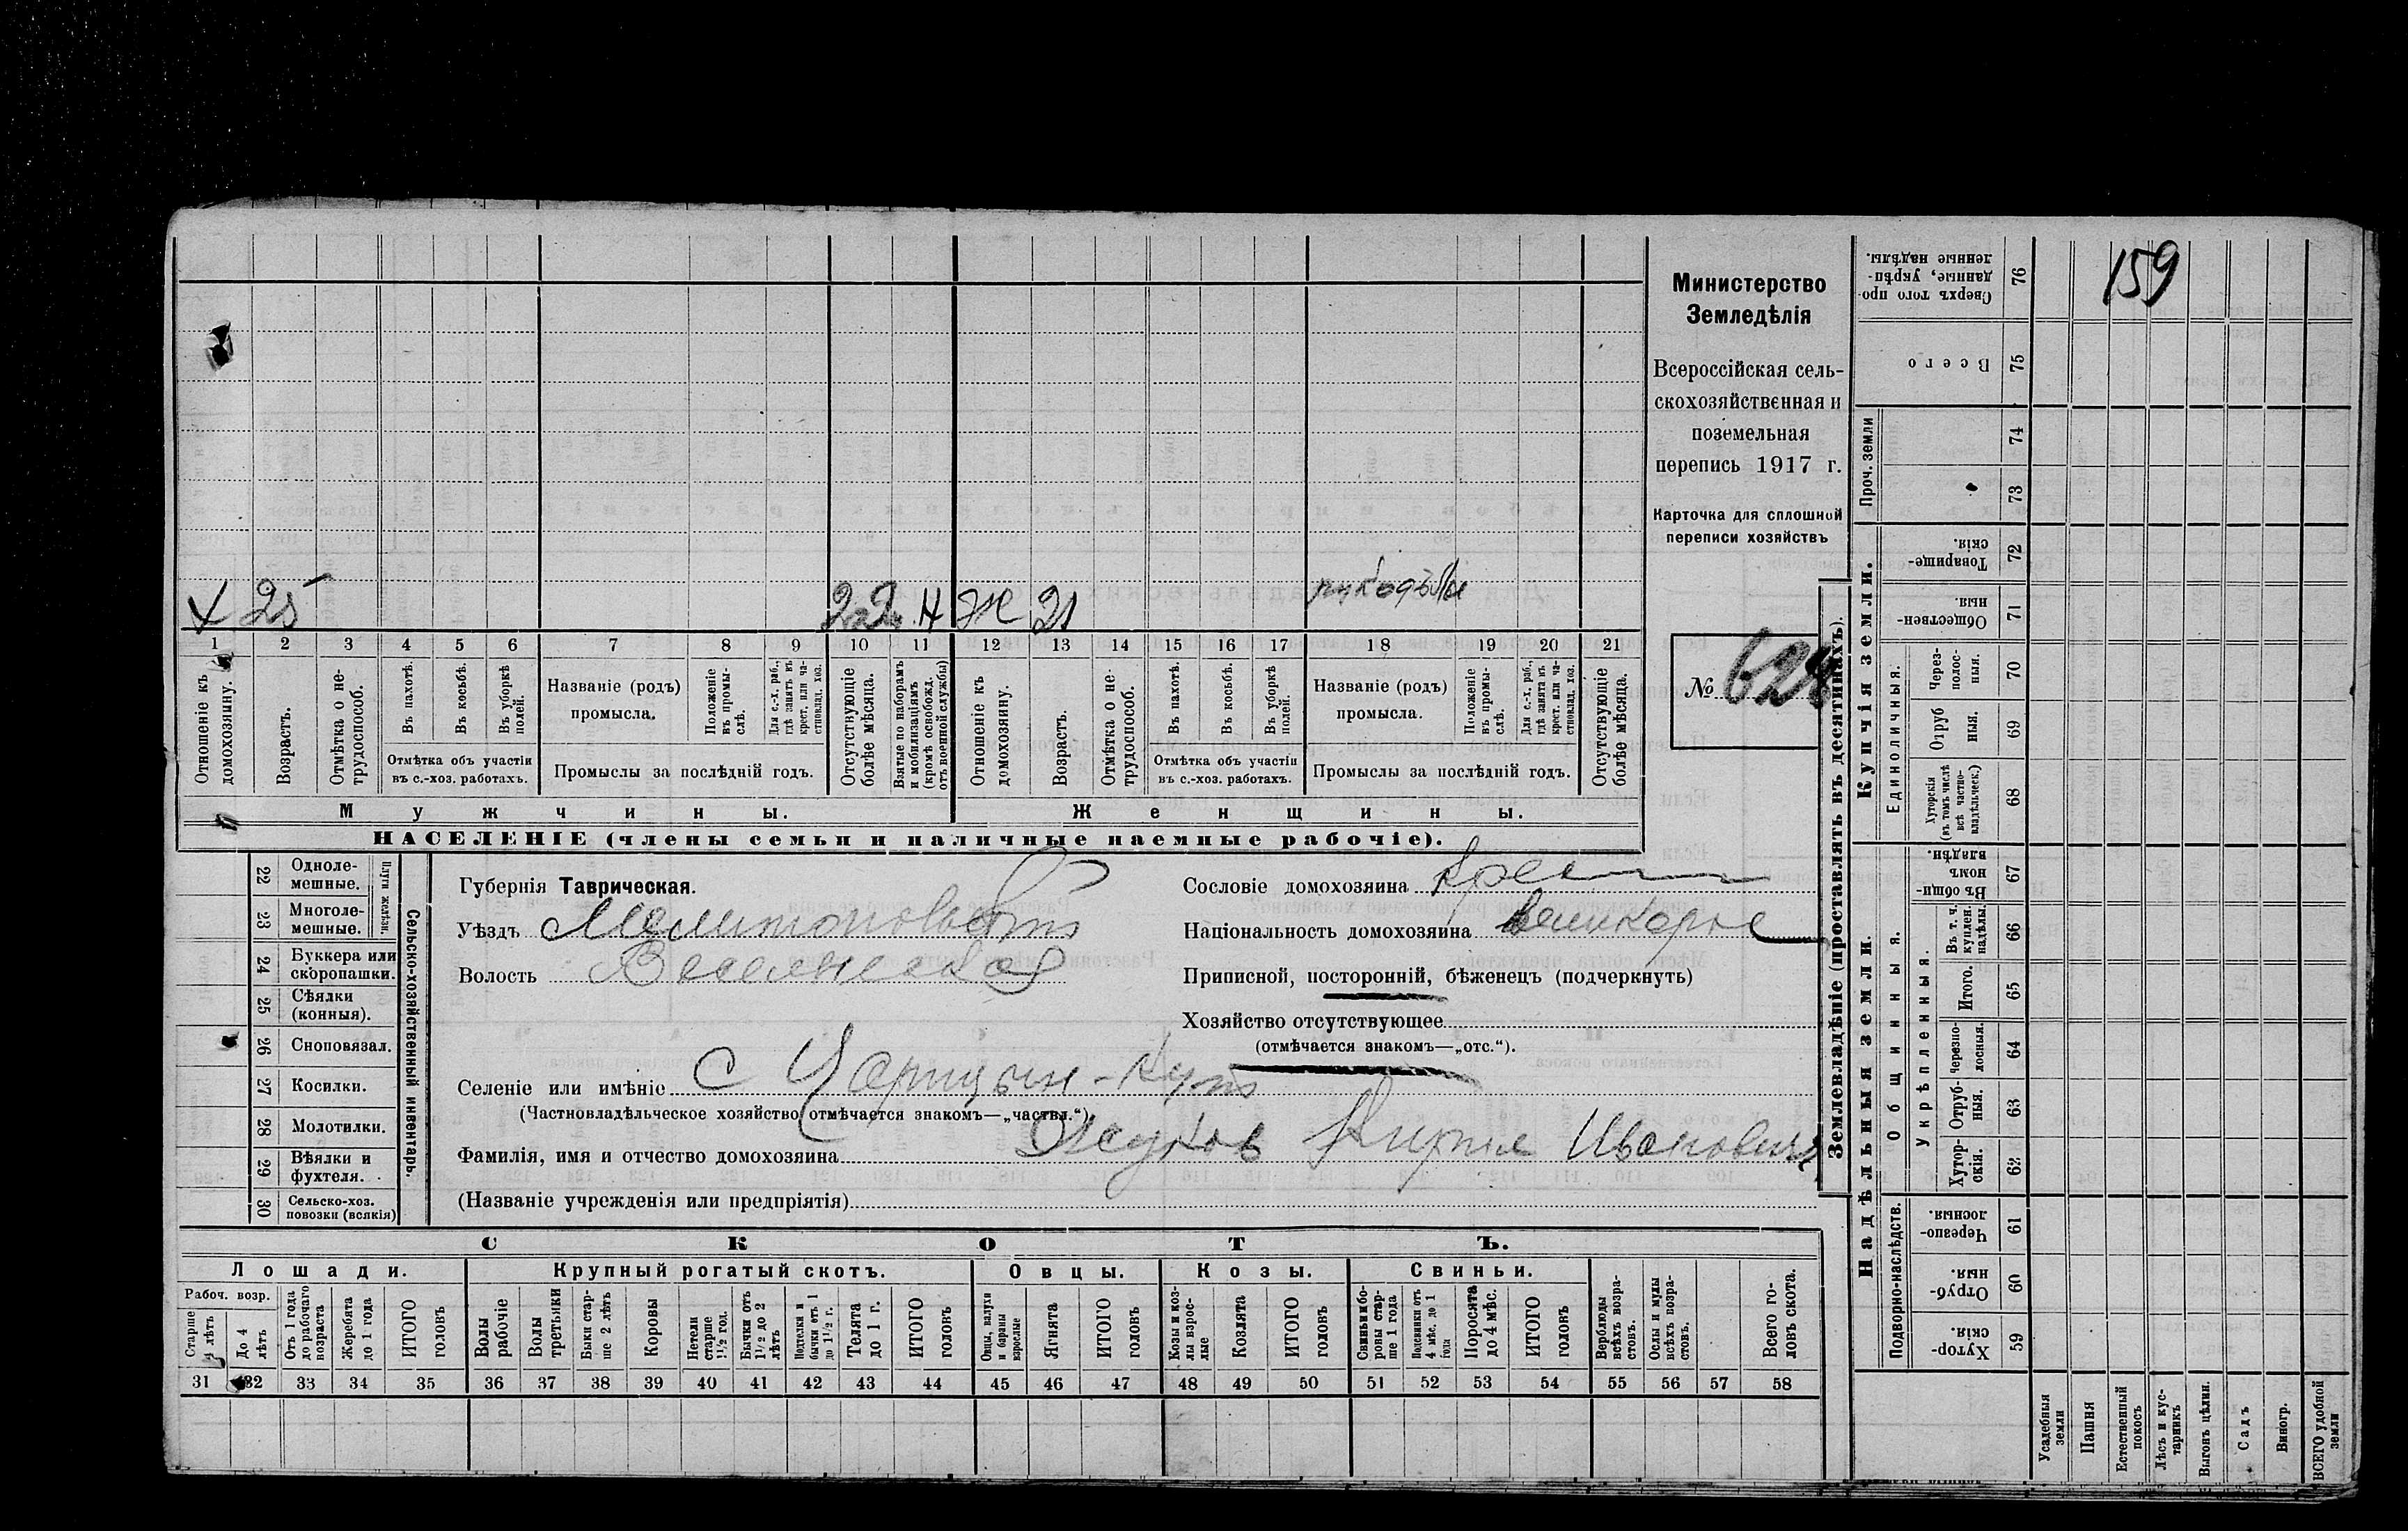 159
Министерство
Земледѣлія
Всероссійская сель-
скохозяйственная и
поземельная
перепись 1917 г.
Карточка для сплошной
переписи хозяйствъ
№ 628
х 25 2 г. Н Ж 21 рукодѣліе
1 2 3 4 5 6 7 8 9 10 11 12 13 14 15 16 17 18 19 20 21
Отношеніе къ домохозяину.
Возрастъ.
Отмѣтка о не-
трудоспособ.
Въ пахотѣ.
Въ косьбѣ.
Въ уборкѣ полей.
Отмѣтка объ участіи
въ с.-хоз. работахъ.
Названіе (родъ)
промысла.
Положеніе въ промы-
слѣ.
Для с.-х. раб., гдѣ занятъ въ крест. или ча-
стновлад. хоз.
Промыслы за послѣдній годъ.
Отсутствующіе болѣе мѣсяца.
Взятые по наборамъ и мобилизаціямъ (кромѣ освобожд. отъ военной службы)
Отношеніе къ домохозяину.
Возрастъ.
Отмѣтка о не-
трудоспособ.
Въ пахотѣ.
Въ косьбѣ.
Въ уборкѣ полей.
Отмѣтка объ участіи
въ с.-хоз. работахъ.
Названіе (родъ)
промысла.
Положеніе въ промы-
слѣ.
Для с.-х. раб., гдѣ занята въ крест. или ча-
стновлад. хоз.
Промыслы за послѣдній годъ.
Отсутствующіе болѣе мѣсяца.
Мужчины.
Женщины.
НАСЕЛЕНІЕ (члены семьи и наличные наемные рабочіе).
22 Одноле-
мешные.
23 Многоле-
мешные.
Плуги желѣзн.
24 Буккера или
скоропашки.
25 Сѣялки
(конныя).
26 Сноповязал.
27 Косилки.
28 Молотилки.
29 Вѣялки и
фухтеля.
30 Сельско-хоз.
повозки (всякія)
Сельско-хозяйственный инвентарь.
Губернія Таврическая.
Уѣздъ Мелитопольскій
Волость Веселенская
Сословіе домохозяина Крест
Національность домохозяина великорос
Приписной, посторонній, бѣженецъ (подчеркнуть)
Хозяйство отсутствующее
(отмѣчается знакомъ—„отс.“).
Селеніе или имѣніе С Царицын-Кут
(Частновладѣльческое хозяйство отмѣчается знакомъ—„частвл.“)
Фамилія, имя и отчество домохозяина Жуков Кирил Иванович
(Названіе учрежденія или предпріятія)
СКОТЪ.
Лошади. Крупный рогатый скотъ. Овцы. Козы. Свиньи.
Рабоч. возр.
Старше 4 лѣтъ
До 4 лѣтъ
Отъ 1 года до рабочаго возраста
Жеребята до 1 года
ИТОГО головъ
Волы рабочіе
Волы третьяки
Быки стар-
ше 2 лѣтъ
Коровы
Нетели старше 1½ год.
Бычки отъ 1½ до 2 лѣтъ
Подтелки и бычки отъ 1 до 1½ г.
Телята до 1 г.
ИТОГО головъ
Овцы, валухи и бараны взрослые
Ягнята
ИТОГО головъ
Козы и коз-
лы взрос-
лые
Козлята
ИТОГО головъ
Свиньи и бо-
ровы стар-
ше 1 года
Подсвинки отъ 4 мѣс. до 1 года
Поросята до 4 мѣс.
ИТОГО головъ
Верблюды всѣхъ возра-
стовъ.
Ослы и мулы всѣхъ возра-
стовъ.
Всего го-
ловъ скота.
31 32 33 34 35 36 37 38 39 40 41 42 43 44 45 46 47 48 49 50 51 52 53 54 55 56 57 58
Землевладѣніе (проставлять въ десятинахъ).
Надѣльныя земли.
Купчія земли.
Проч. земли
Подворно-наслѣдств.
Общинныя.
Укрѣпленныя.
Единоличныя.
Сверхъ того про-
данные, укрѣп-
ленные надѣлы. 76
Всего 75
74
73
Товарище-
скія. 72
Обществен-
ныя. 71
Через-
полос-
ныя. 70
Отруб
ныя. 69
Хуторскія
(въ томъ числѣ
всѣ частно-
владѣльческ.) 68
Въ общи-
номъ
владѣн. 67
Въ т. ч.
куплен.
надѣлы. 66
Итого. 65
Черезпо-
лосныя. 64
Отруб-
ныя. 63
Хутор-
скія. 62
Черезпо-
лосныя. 61
Отруб-
ныя. 60
Хутор-
скія. 59
Усадебныя земли
Пашня
Естественный покосъ
Лѣсъ и кус-
тарникъ
Выгонъ цѣлин.
Садъ
Виногр.
ВСЕГО удобной земли